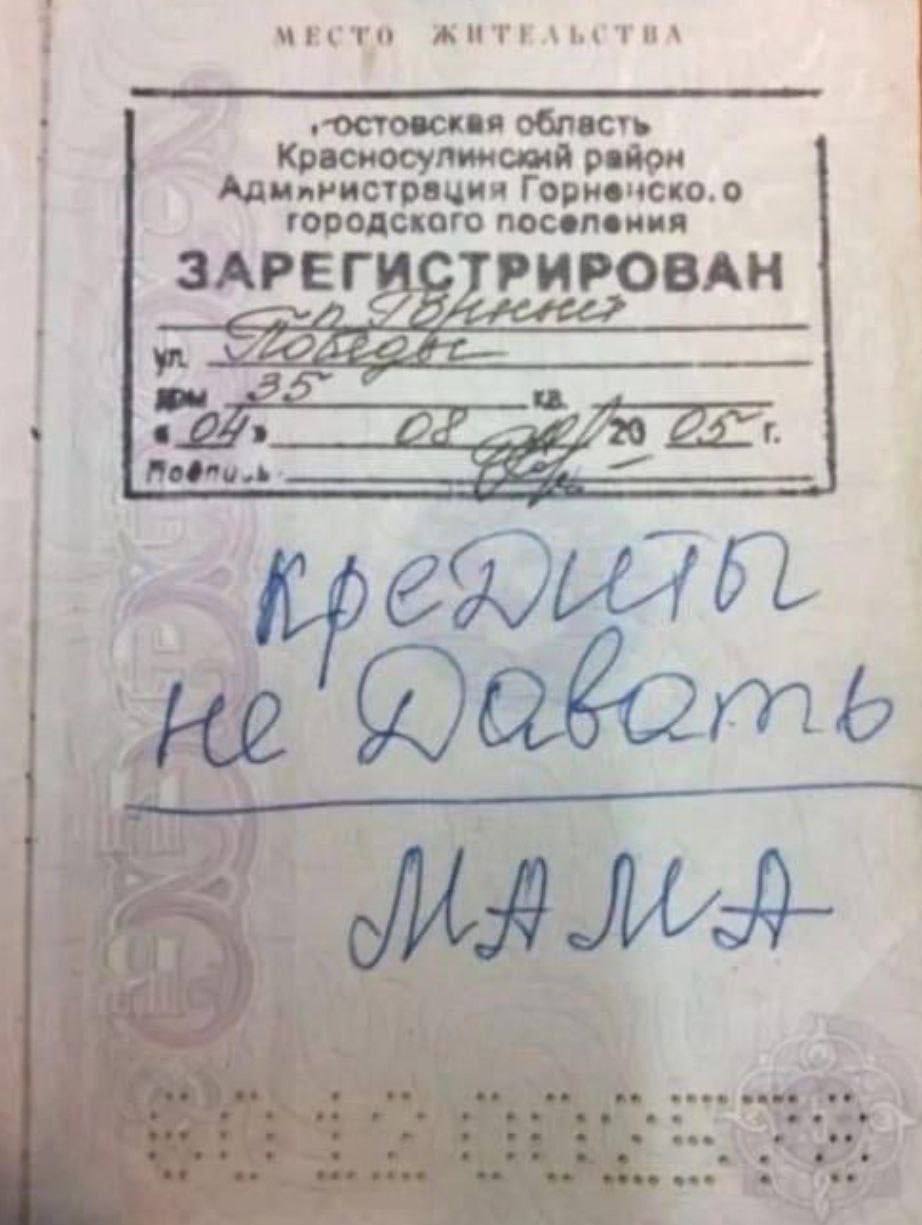 МЕСТО ЖИТЕЛЬСТВА
Ростовская область
Красносулинский район
Администрация Горненского
городского поселения
ЗАРЕГИСТРИРОВАН
п. Горный
ул. Победы
дом 35 кв.
« 04 » 08 20 05 г.
Подпись
кредиты
не Давать
МАМА